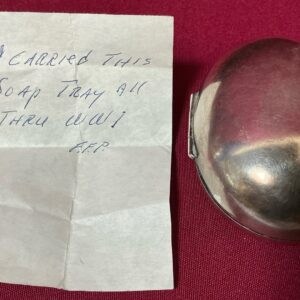 I CARRIED THIS
SOAP TRAY All
THRU WWI
F.F.P.